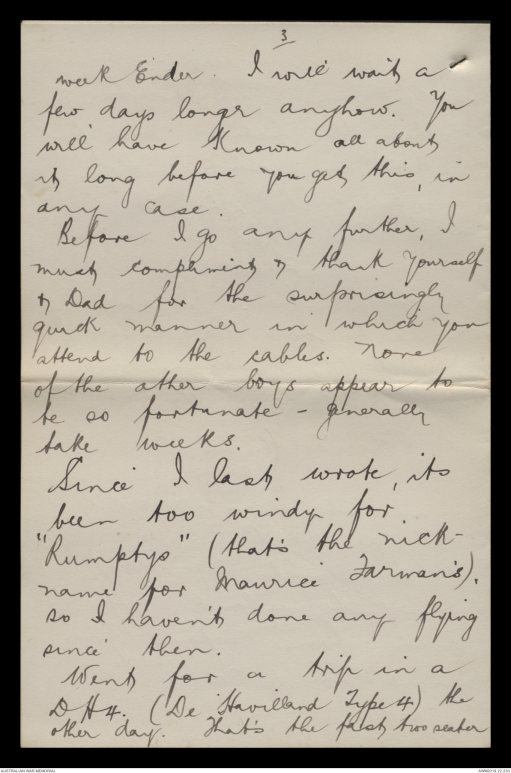 3
week Ender. I will wait a
few days longer anyhow. You
will have known all about
it long before you get this, in
any case.
Before I go any further, I
must compliment & thank yourself
& Dad for the surprisingly
quick manner in which you
attend to the cables. None
of the other boys appear to
be so fortunate - generally
take weeks.
Since I last wrote, its
been too windy for
"Rumptys" (that's the nick-
name for Maurice Farman's).
so I haven't done any flying
since then.
Went for a trip in a
D H 4. (De Havilland Type 4) the
other day. That's the fast two seater
AUSTRALIAN WAR MEMORIAL